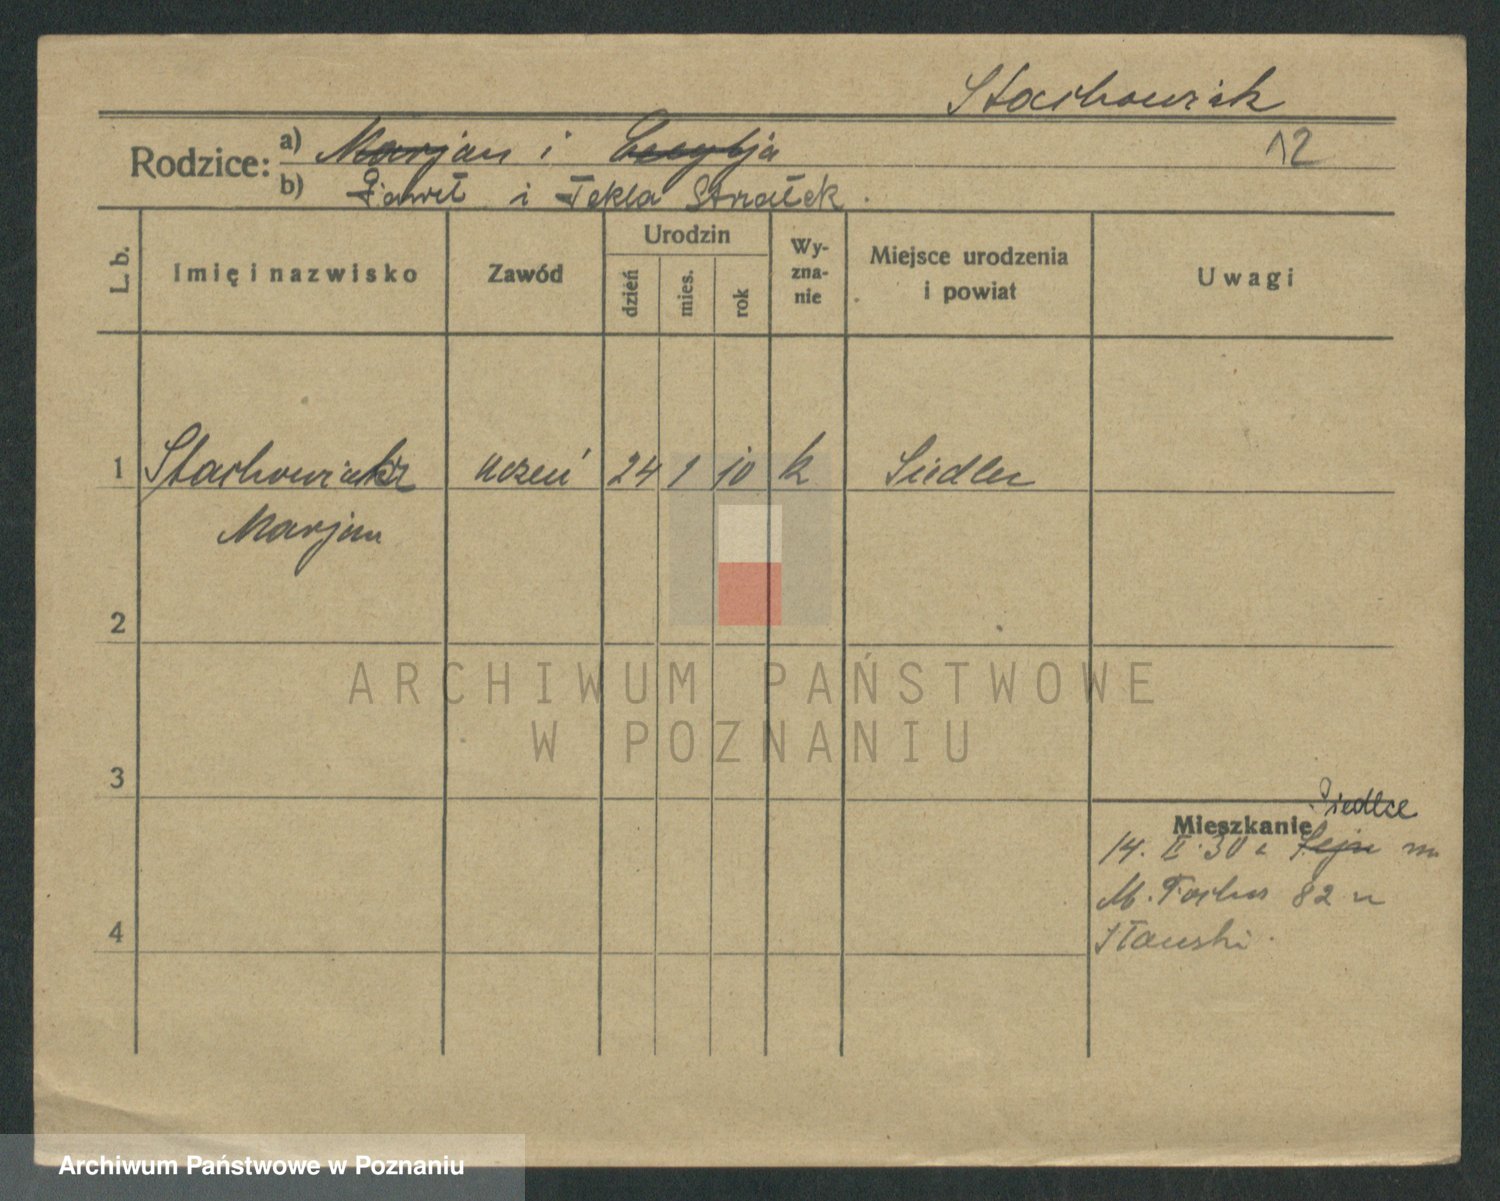 Stachowiak
12
Rodzice: a) Marjan i Cecylja
b) Paweł i Tekla Strzałek.
L. b. Imię i nazwisko Zawód Urodzin dzień mies. rok Wyznanie Miejsce urodzenia i powiat Uwagi
1 Stachowiak uczeń 24 1 10 k Siedlec
Marjan
2
3
4
Siedlce
Mieszkanie
14. II. 30 z
M. Focha 82 u
ARCHIWUM PAŃSTWOWE
W POZNANIU
Archiwum Państwowe w Poznaniu